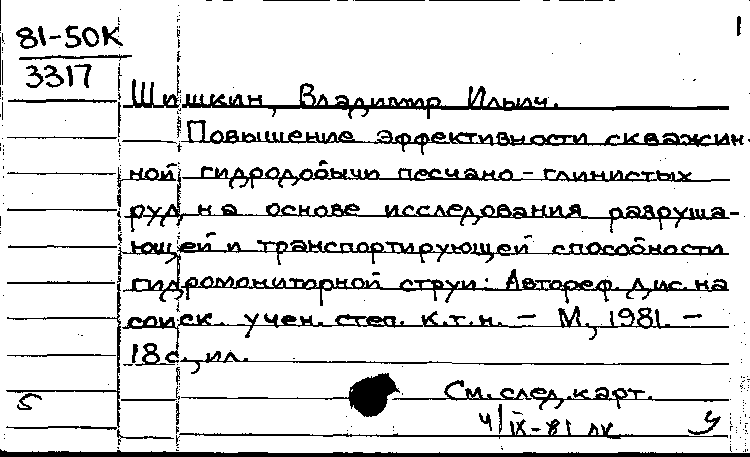 1
81-50К
3317
Шишкин, Владимир Ильич.
Повышение эффективности скважин-
ной гидродобычи песчано-глинистых
руд на основе исследования разруша-
ющей и транспортирующей способности
гидромониторной струи: Автореф. дис. на
соиск. учен. степ. к.т.н. - М., 1981. -
18с., ил.
См. след. карт.
5
4/IX-81 лк